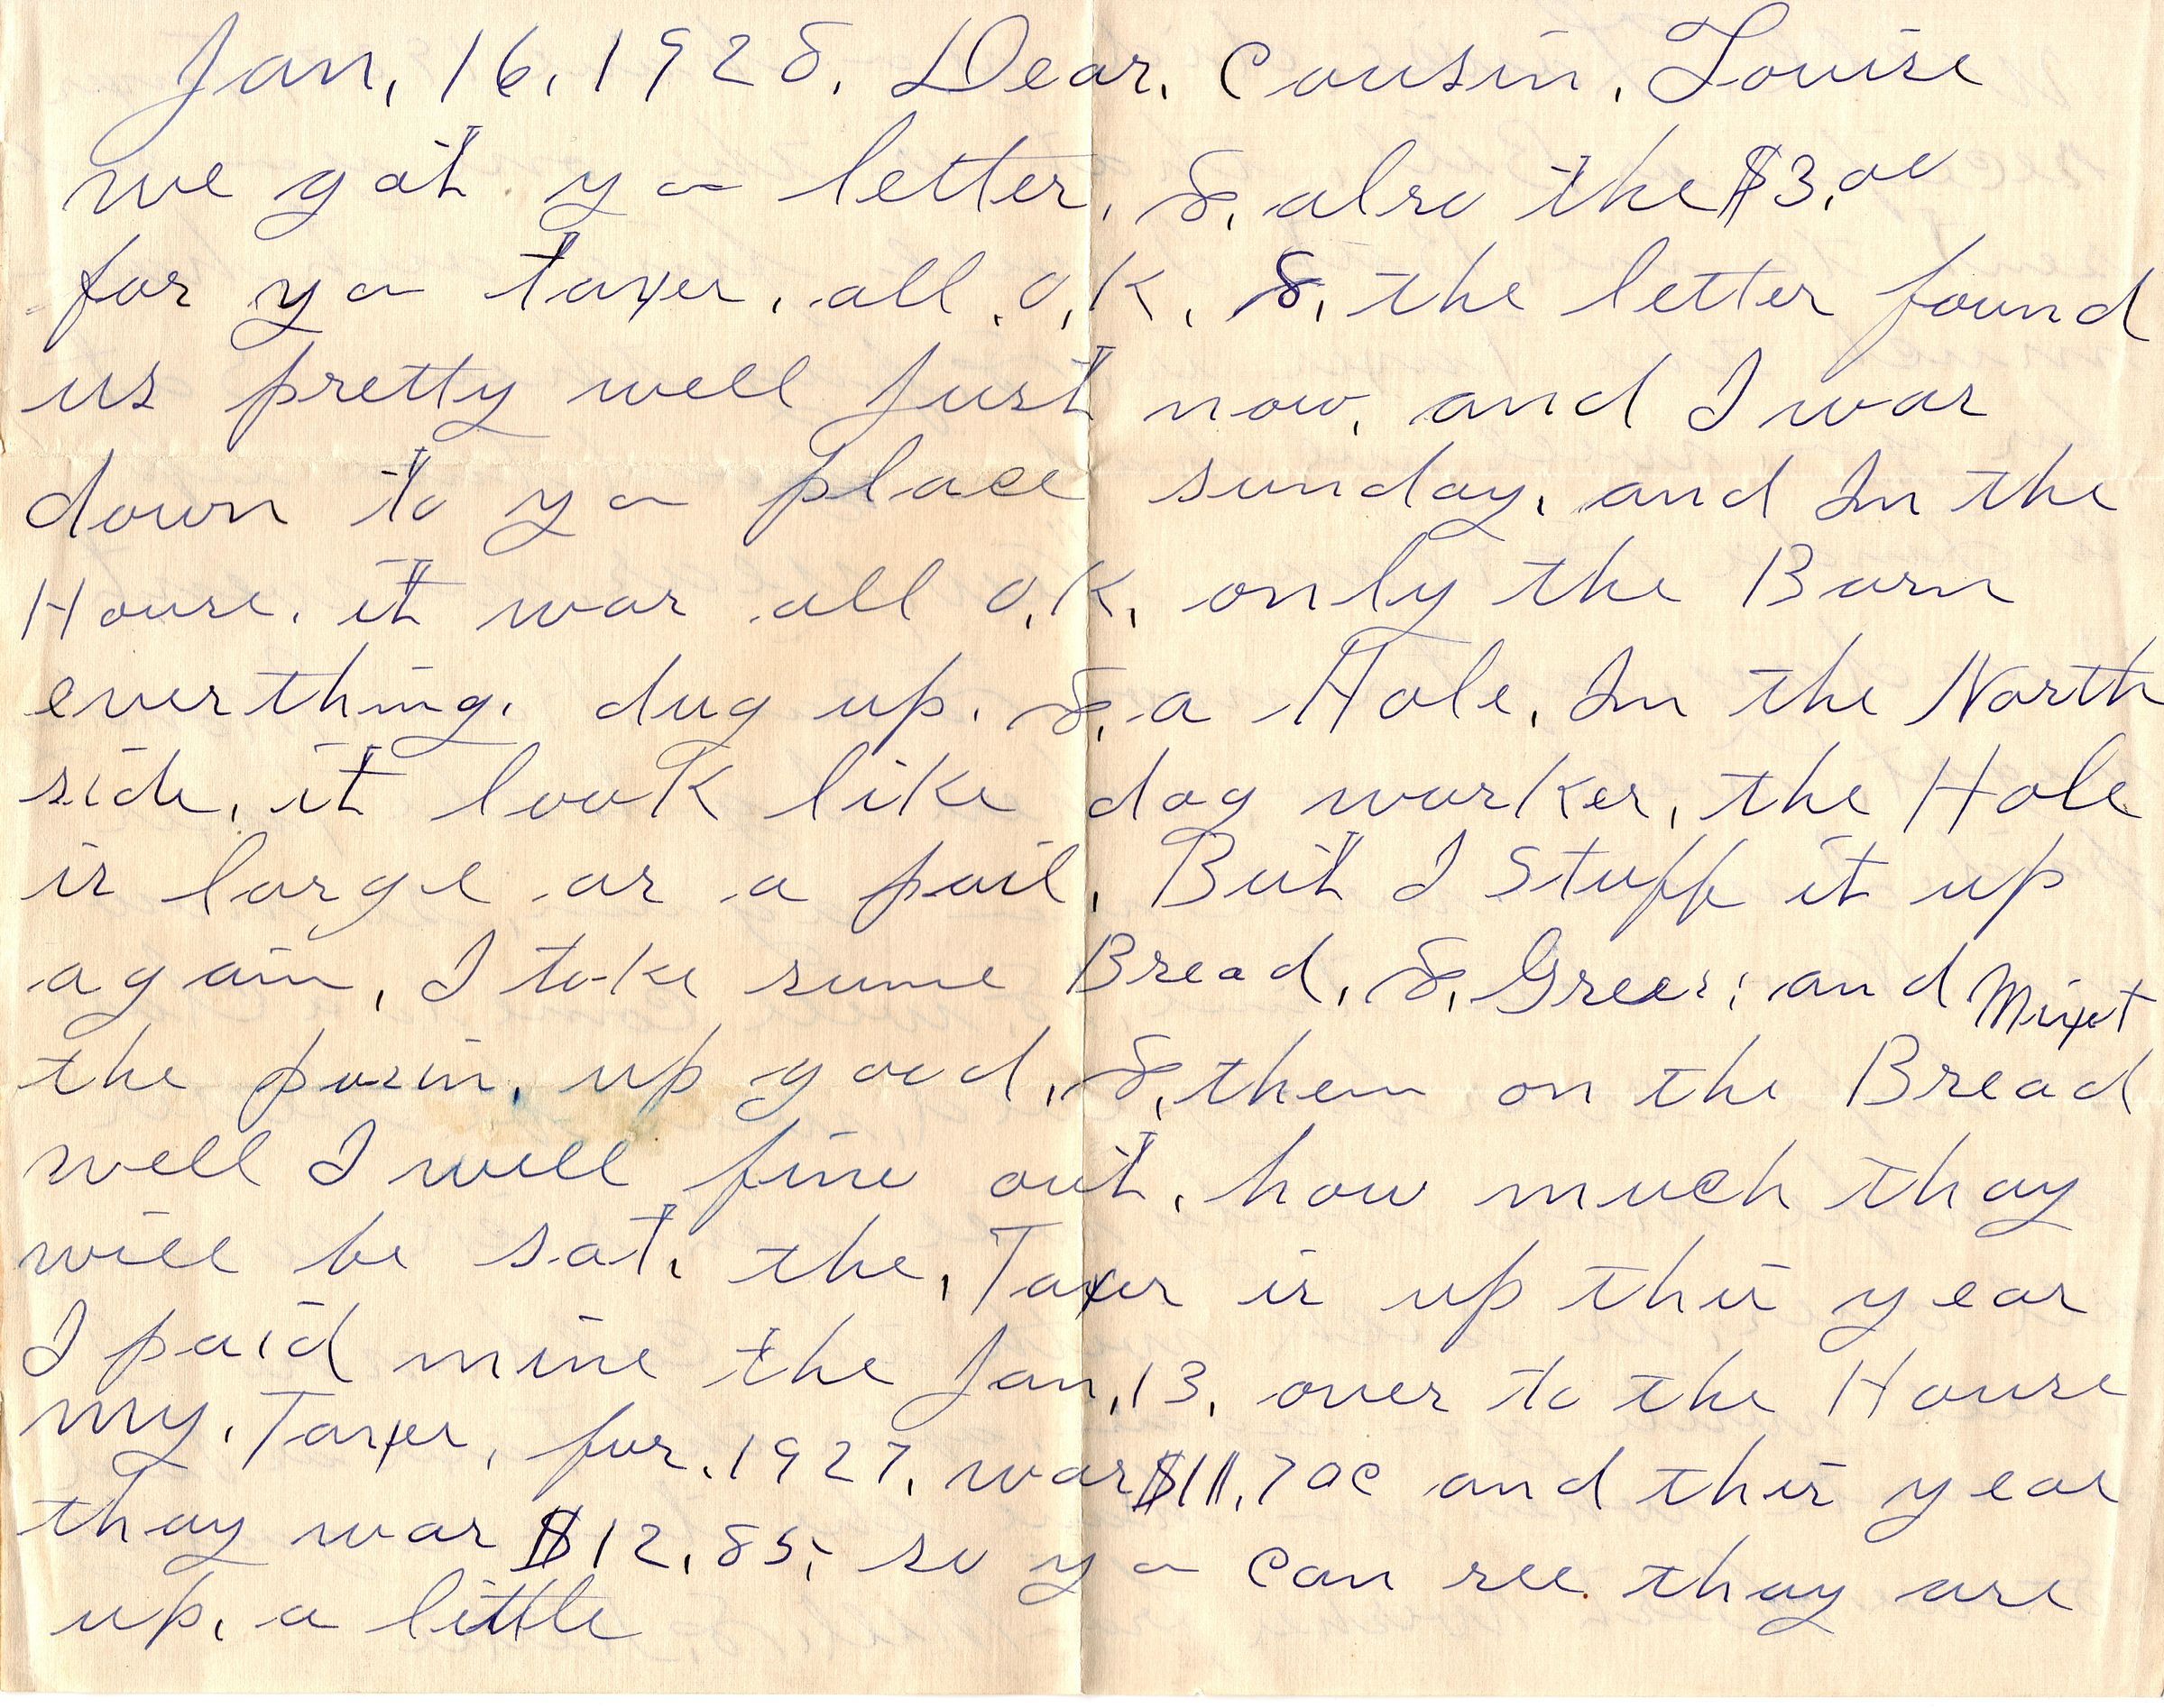 Jan, 16, 1928. Dear. Cousin. Louise
we got yo letter, &, also the $3,00
for yo taxes, all O,K, &, the letter found
us pretty well Just now, and I was
down to yo place sunday, and In the
House, it was all O,K, only the Barn
everthing, dug up, &, a Hole, In the North
side, it look like dog worker, the Hole
is large as a pail, But I Stuff it up
again, I take some Bread, &, Grees; and Mixet
the posin, up good, &, them on the Bread
well I will fine out, how much thay
will be sot, the, Taxes is up this year
I paid mine the Jan, 13, over to the House
my, Taxes, for, 1927, was $11,70c and this year
thay was $12,85, so yo can see thay are
up, a little